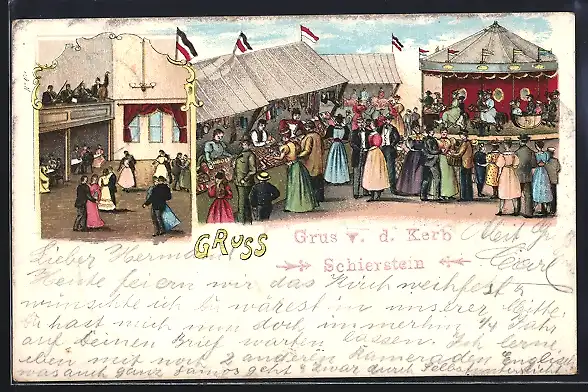 GRUSS
Grus v. d. Kerb
Schierstein
Carl
Lieber Hermann
Heute feiern wir das Kirchweihfest &
wünschte ich Du wärest in unserer Mitte.
Du hast mich nun doch immerhin 1/4 Jahr
auf Deinen Brief warten lassen. Ich lerne
eben mit noch 2 anderen Kameraden Englisch
was auch ganz famos geht & zwar durch Selbstunterricht